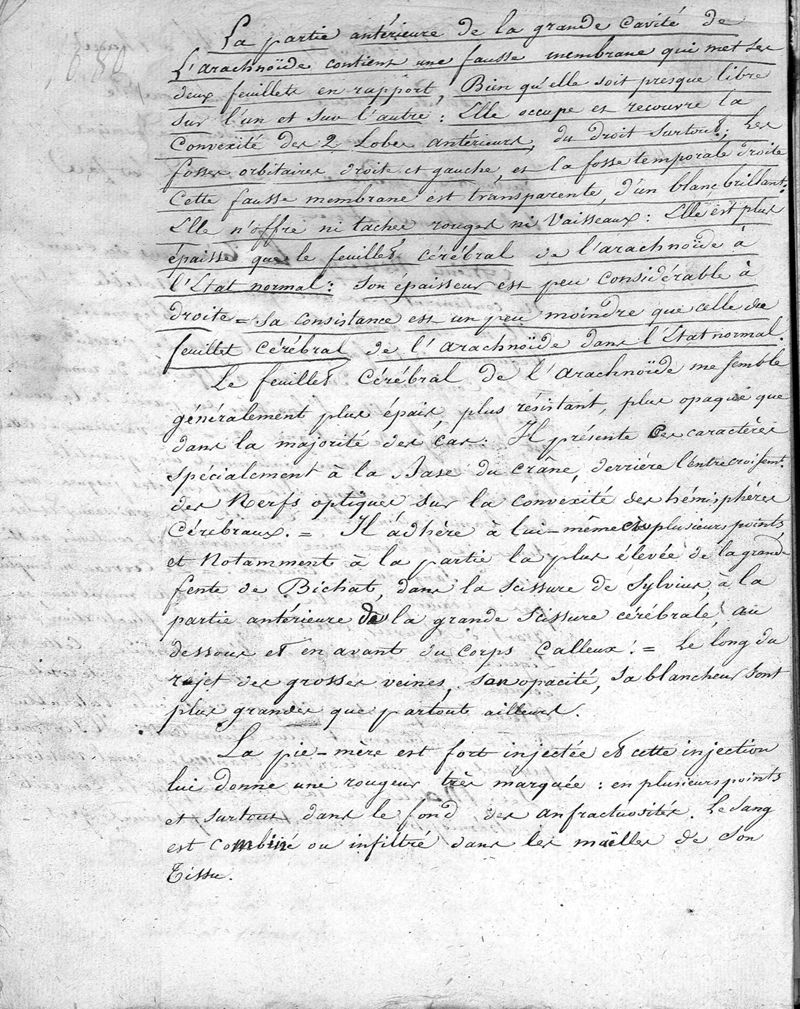 La partie antérieure de la grande cavité de
L'arachnoïde contient une fausse membrane qui met ses
deux feuillets en rapport, Bien qu'elle soit presque libre
sur l'un et sur l'autre : Elle occupe et recouvre la
convexité des 2 Lobes antérieurs, du droit surtout; Les
fosses orbitaires droite et gauche, et la fosse temporale droite
cette fausse membrane est transparente, d'un blanc brillant:
Elle n'offre ni taches rouges ni Vaisseaux : Elle est plus
épaisse que le feuillet cérébral de l'arachnoïde à
l'État normal : Son épaisseur est peu considérable à
droite = sa consistance est un peu moindre que celle du
feuillet cérébral de l'arachnoïde dans l'État normal.
Le feuillet cérébral de l'arachnoïde me semble
généralement plus épais, plus résistant, plus opaque que
dans la majorité des cas : Il présente ces caractères
spécialement à la Base du crâne, derrière l'entrecroisemt.
des Nerfs optiques sur la convexité des hémisphères
Cérébraux. = Il adhère à lui-même en plusieurs points,
et Notamment à la partie la plus élevée de la grande
fente de Bichat, dans la scissure de Sylvius, à la
partie antérieure de la grande scissure cérébrale, au
dessous et en avant du corps Calleux. = Le long du
trajet des grosses veines, son opacité, sa blancheur sont
plus grandes que partout ailleurs.
La pie-mère est fort injectée et cette injection
lui donne une rougeur très marquée : en plusieurs points
et surtout dans le fond des anfractuosités. Le Sang
est combiné ou infiltré dans les maëlles de Son
Tissu.